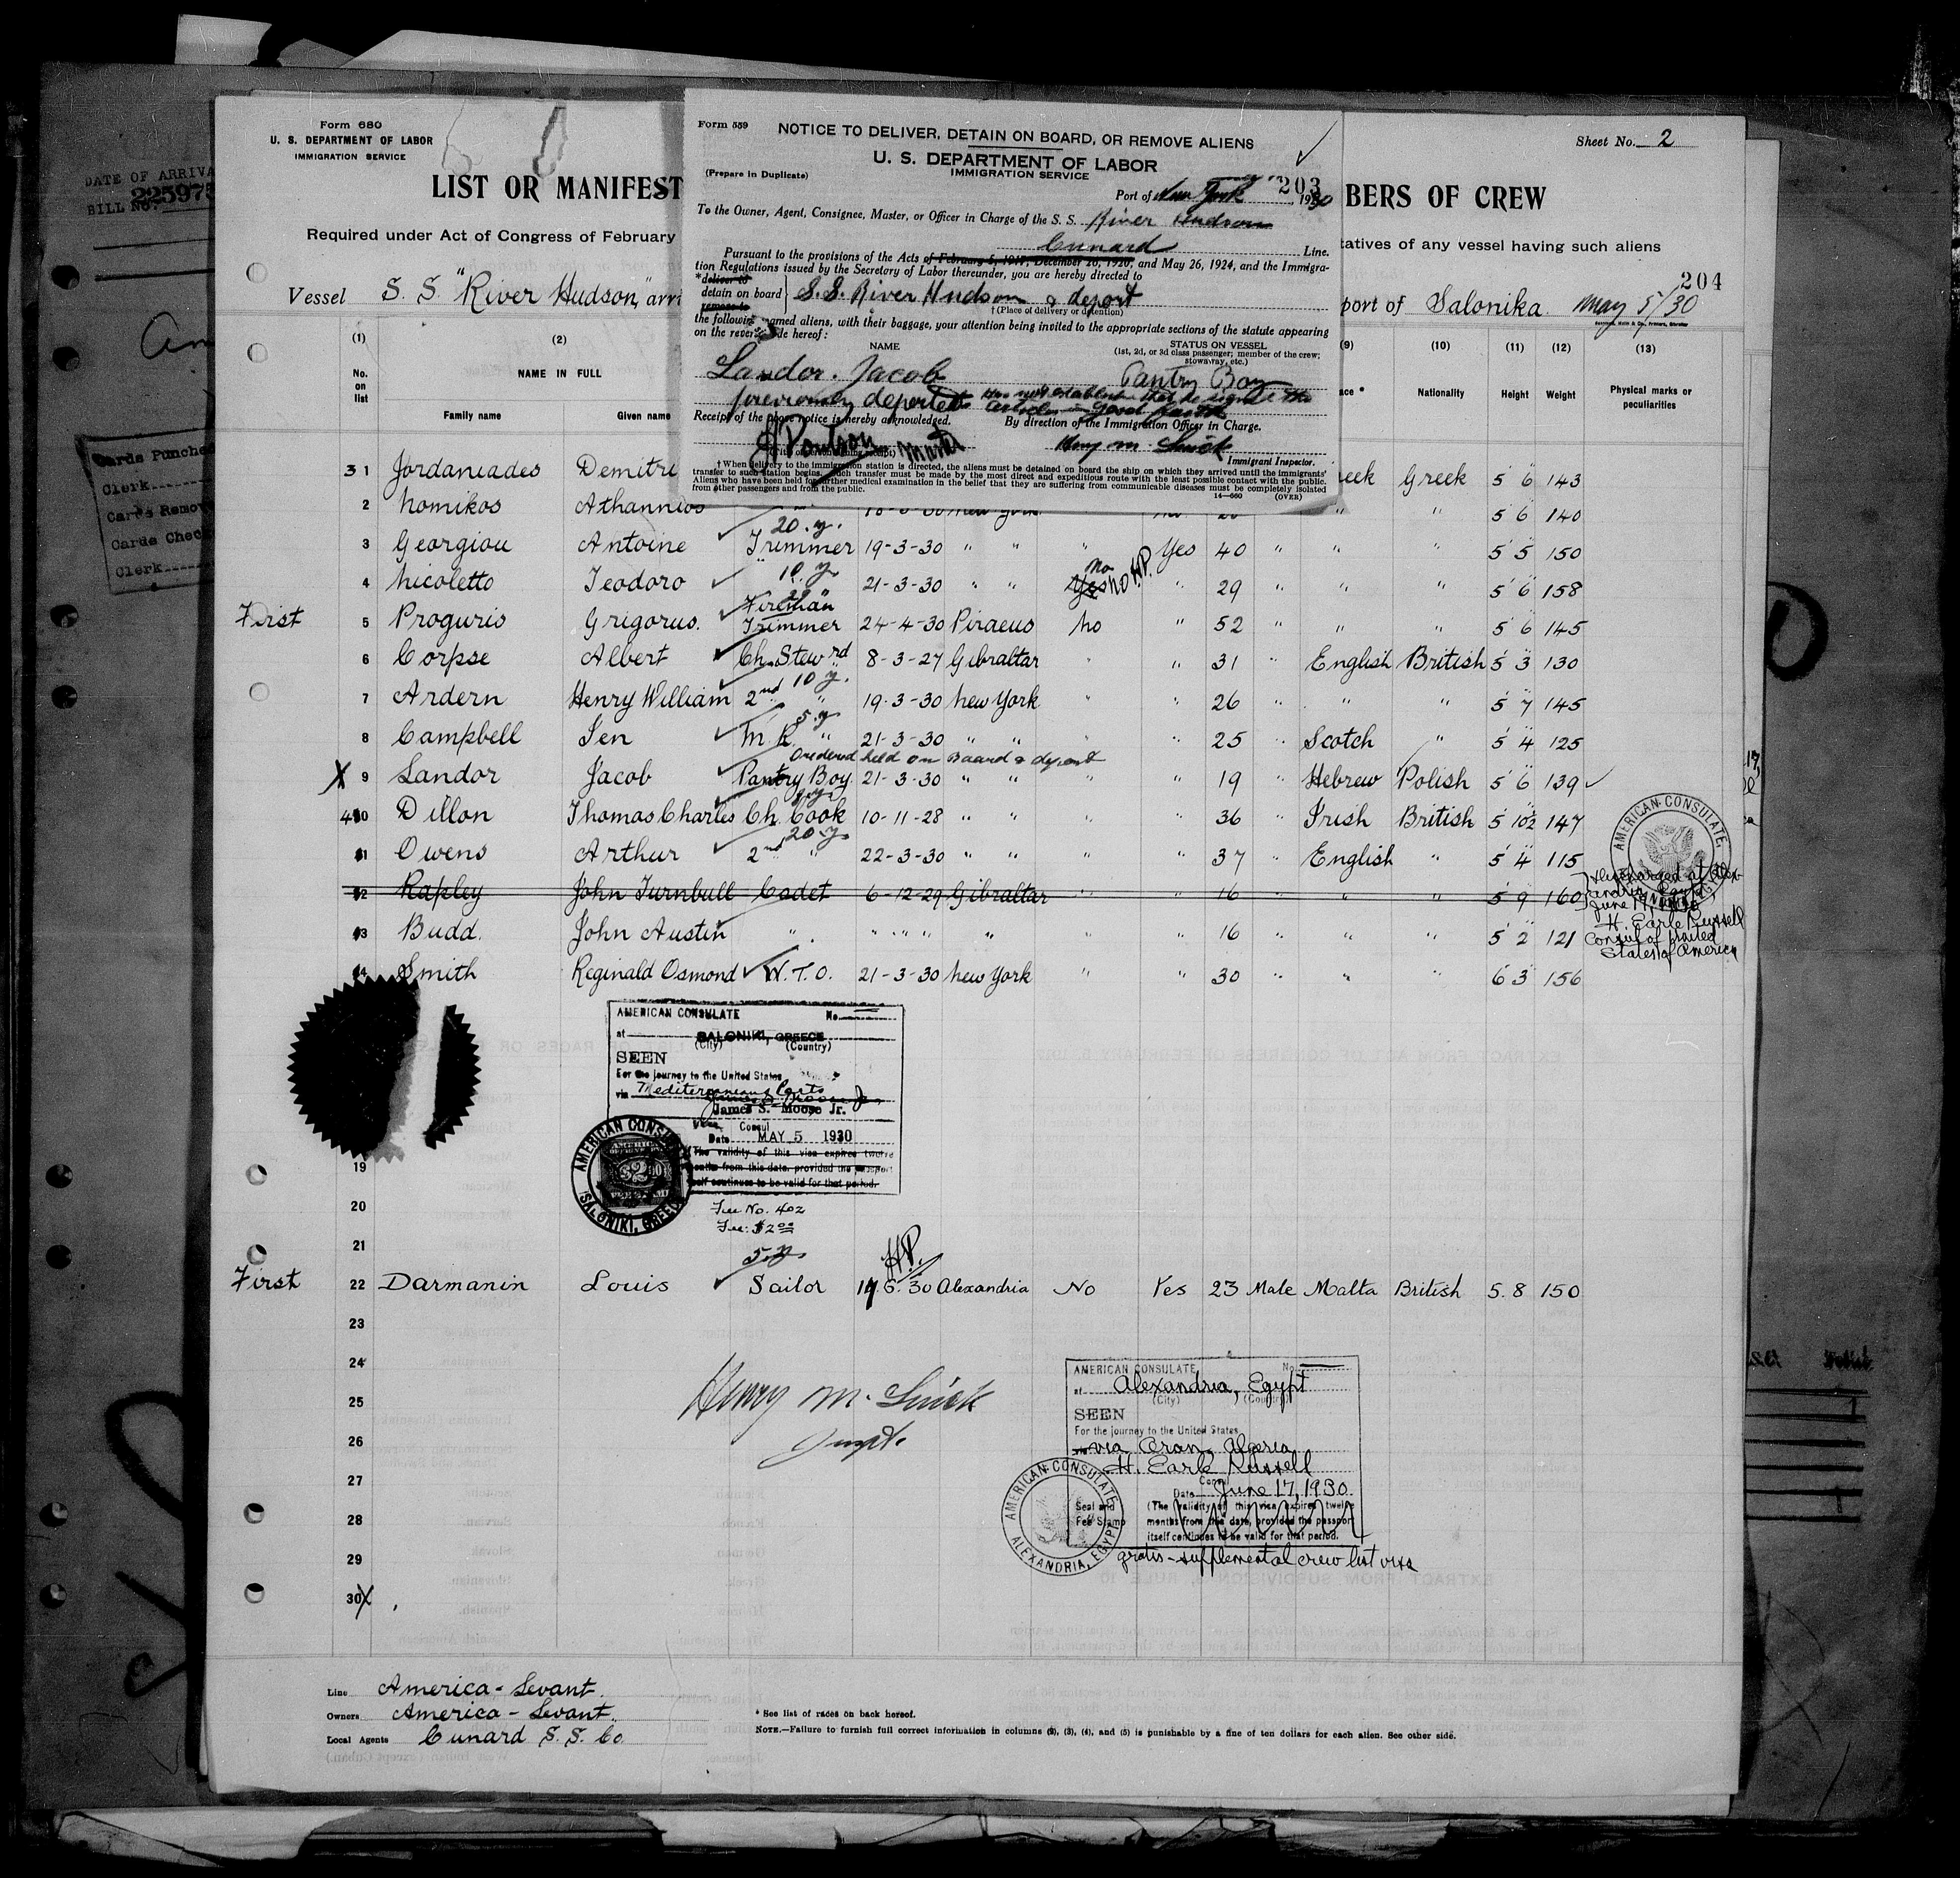 Form 680
U. S. DEPARTMENT OF LABOR
IMMIGRATION SERVICE
LIST OR MANIFEST
BERS OF CREW
Sheet No. 2
Required under Act of Congress of February
tatives of any vessel having such aliens
204
Vessel S. S. "River Hudson," arri
port of Salonika. May 5/30
DATE OF ARRIVA
225975
BILL NO.
Cards Punche
Clerk
Cards Remov
Cards Chec
Clerk
Form 559
NOTICE TO DELIVER, DETAIN ON BOARD, OR REMOVE ALIENS
U. S. DEPARTMENT OF LABOR
IMMIGRATION SERVICE
(Prepare in Duplicate)
203
Port of New York, 1930
To the Owner, Agent, Consignee, Master, or Officer in Charge of the S. S. River Hudson
Cunard Line.
Pursuant to the provisions of the Acts of February 5, 1917, December 26, 1920, and May 26, 1924, and the Immigra-
tion Regulations issued by the Secretary of Labor thereunder, you are hereby directed to
*deliver to
detain on board
remove to
S.S. River Hudson & deport
†(Place of delivery or detention)
the following named aliens, with their baggage, your attention being invited to the appropriate sections of the statute appearing
on the reverse side hereof:
NAME
STATUS ON VESSEL
(1st, 2d, or 3d class passenger; member of the crew;
stowaway, etc.)
Sandor. Jacob Pantry Boy
previously deported Has not established that he signed the
articles in good faith
Receipt of the above notice is hereby acknowledged.
By direction of the Immigration Officer in Charge.
Master
Henry M.
Immigrant Inspector.
†When delivery to the immigration station is directed, the aliens must be detained on board the ship on which they arrived until the immigrants'
transfer to such station begins. Such transfer must be made by the most direct and expeditious route with the least possible contact with the public.
Aliens who have been held for further medical examination in the belief that they are suffering from communicable diseases must be completely isolated
from other passengers and from the public.
14—660 (OVER)
(1) (2) (9) (10) (11) (12) (13)
No. on list
NAME IN FULL
Family name Given name
ace * Nationality Height Weight Physical marks or peculiarities
3 1 Jordaniades Demitri eek Greek 5 6 143
2 Nomikos Athannios " " 5 6 140
20. y.
3 Georgiou Antoine Trimmer 19-3-30 " " " Yes 40 " " " 5 5 150
10 y. No
4 Nicoletto Teodoro " 21-3-30 " " Yes NO H.P. " 29 " " " 5 6 158
Fireman
First 5 Proguris Grigorus. Trimmer 24-4-30 Piraeus No " 52 " " " 5 6 145
6 Corpse Albert Ch. Stewrd 8-3-27 Gibraltar " " 31 " English British 5 3 130
10 y.
7 Ardern Henry William 2nd " 19-3-30 New York " " 26 " " " 5 7 145
5. y
8 Campbell Ien M. R. " 21-3-30 " " " " 25 " Scotch " 5 4 125
Ordered held on Board & deport
X 9 Sandor Jacob Pantry Boy 21-3-30 " " " " 19 Hebrew Polish 5 6 139
4 10 Dillon Thomas Charles Ch. Cook 10-11-28 " " " " 36 " Irish British 5 10½ 147
20 y
11 Owens Arthur 2nd " 22-3-30 " " " " 37 " English " 5 4 115
12 Rapley John Turnbull Cadet 6-12-29 Gibraltar " " 16 " " " 5 9 160
13 Budd. John Austin " " " " " " " 16 " " " 5 2 121
14 Smith Reginald Osmond W. T. O. 21-3-30 New York " " 30 " " " 6 3 156
AMERICAN CONSULATE
Discharged at Alex-
andria, Egypt,
June 17, 1930
H. Earle Russell
Consul of United
States of America
AMERICAN CONSULATE No.
at SALONIKI, GREECE
(City) (Country)
SEEN
For the journey to the United States
via Mediterranean Ports
James S. Moose Jr.
James S. Moose Jr.
Vice Consul
Date MAY 5 1930
(The validity of this visa expires twelve
months from this date, provided the passport
itself continues to be valid for that period.
AMERICAN CONSULATE SALONIKI, GREECE
Fee No. 402
Fee: $2.00
19
20
21
5. y H.P.
First 22 Darmanin Louis Sailor 17. 6. 30 Alexandria No Yes 23 Male Malta British 5. 8 150
23
24
25
26
27
28
29
30
Henry M.
Inspt.
AMERICAN CONSULATE No.
at Alexandria, Egypt
(City) (Country)
SEEN
For the journey to the United States
via Oran, Algeria
H. Earle Russell
Consul
Date June 17, 1930.
Seal and
Fee Stamp
(The validity of this visa expires twelve
months from this date, provided the passport
itself continues to be valid for that period.
AMERICAN CONSULATE ALEXANDRIA, EGYPT
gratis - supplemental crew list visa
Line America - Levant.
Owners America - Levant.
Local Agents Cunard S. S. Co.
* See list of races on back hereof.
NOTE.—Failure to furnish full correct information in columns (2), (3), (4), and (5) is punishable by a fine of ten dollars for each alien. See other side.